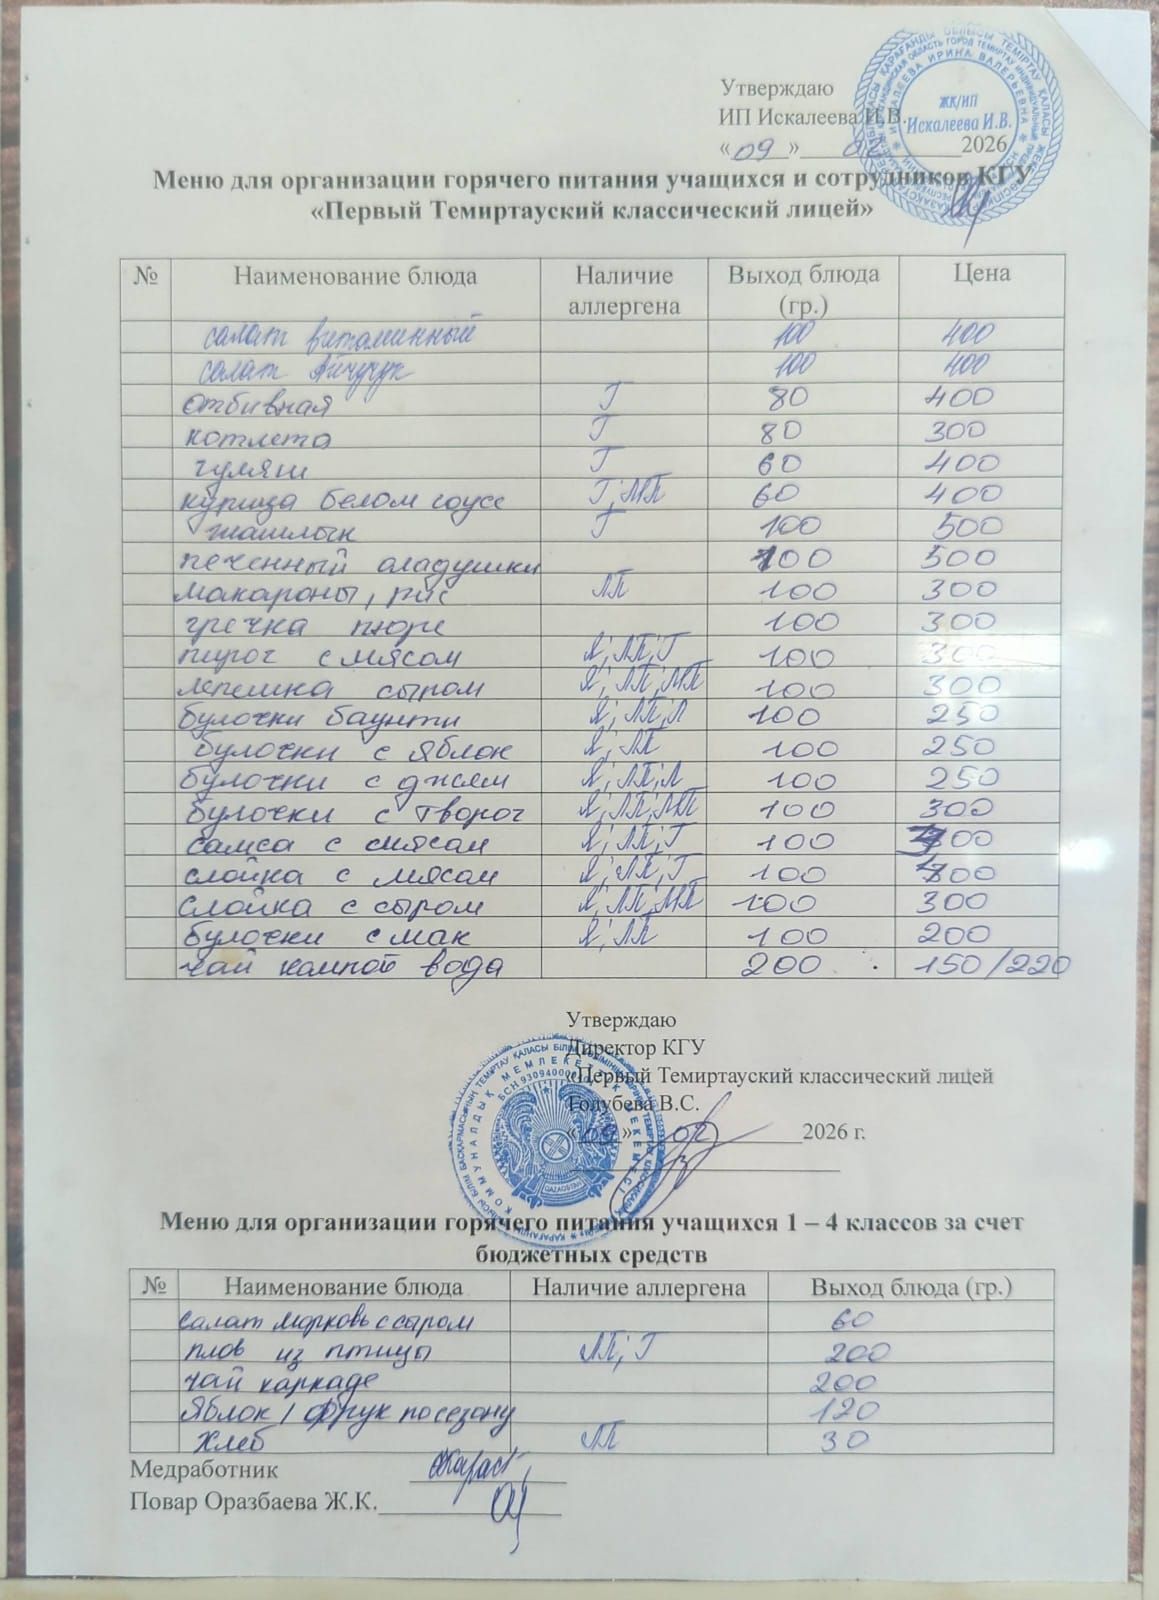 Утверждаю
ИП Искалеева И.В.
«09» 02 2026
ЖК/ИП
Искалеева И.В.
Меню для организации горячего питания учащихся и сотрудников КГУ
«Первый Темиртауский классический лицей»
№ Наименование блюда Наличие аллергена Выход блюда (гр.) Цена
салат витаминный 100 400
салат Ачучук 100 400
отбивная Г 80 400
котлета Г 80 300
гуляш Г 60 400
курица белом соусе Г; МП 60 400
шашлык Г 100 500
печенный оладушки 100 500
макароны, рис ЛП 100 300
гречка пюре 100 300
пирог с мясом Я; ЛП; Г 100 300
лепешка сыром Я; ЛП; МП 100 300
булочки баунти Я; ЛП; Л 100 250
булочки с яблок Я; ЛП 100 250
булочки с джем Я; ЛП; Л 100 250
булочки с творог Я; ЛП; МП 100 300
самса с мясом Я; ЛП; Г 100
слойка с мясом Я; ЛП; Г 100
слойка с сыром Я; ЛП; МП 100 300
булочки с мак Я; ЛП 100 200
чай компот вода 200 150/220
Утверждаю
Директор КГУ
«Первый Темиртауский классический лицей
Голубева В.С.
«09» 02 2026 г.
QAZAQSTAN
Меню для организации горячего питания учащихся 1 – 4 классов за счет
бюджетных средств
№ Наименование блюда Наличие аллергена Выход блюда (гр.)
салат морковь с сыром 60
плов из птицы ЛП; Г 200
чай каркаде 200
Яблок / фрук по сезону 120
хлеб ЛП 30
Медработник
Повар Оразбаева Ж.К.